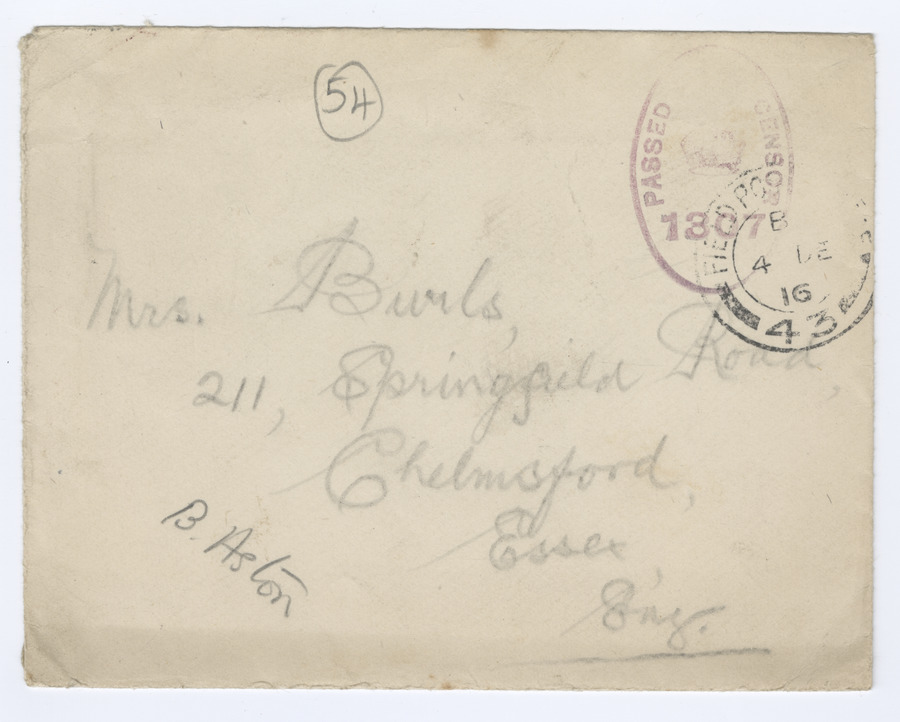 54
PASSED CENSOR
1307
FIELD PO
B
4 DE
16
43
Mrs. Burls,
211, Springfield Road,
Chelmsford,
Essex,
Eng.
B. Aston